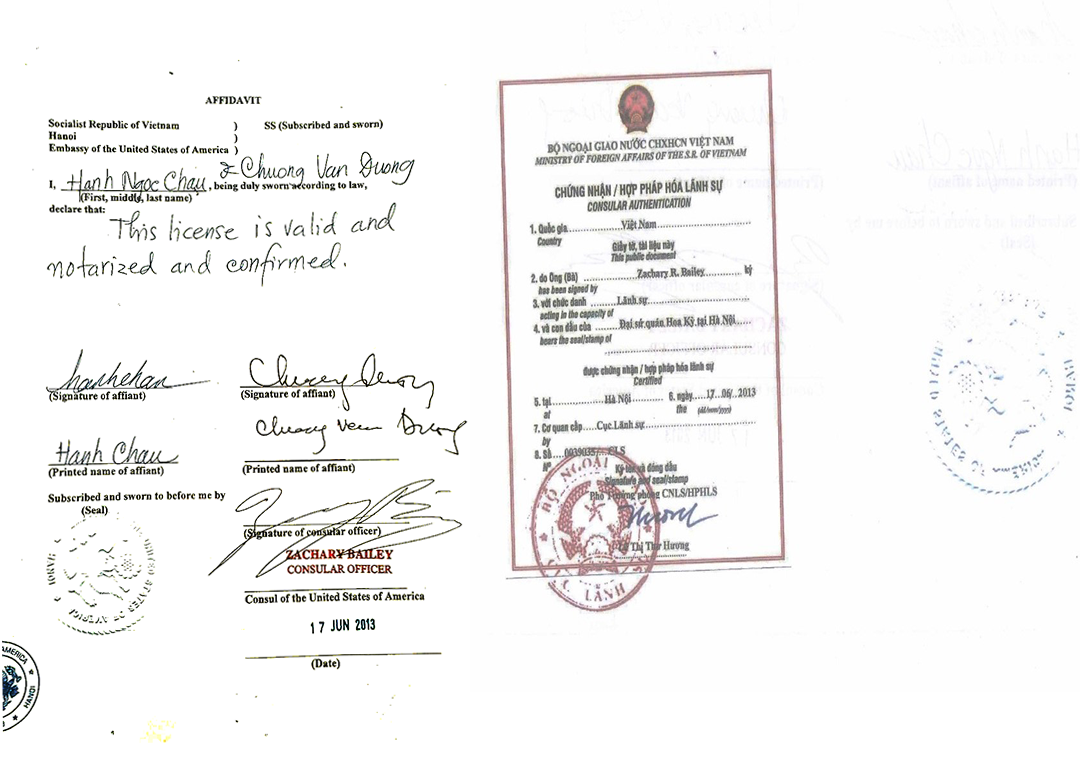 AFFIDAVIT
Socialist Republic of Vietnam ) SS (Subscribed and sworn)
Hanoi )
Embassy of the United States of America )
& Chuong Van Duong
I, Hanh Ngoc Chau, being duly sworn according to law,
(First, middle, last name)
declare that:
This license is valid and
notarized and confirmed.
(Signature of affiant) (Signature of affiant)
Chuong Van Duong
Hanh Chau
(Printed name of affiant) (Printed name of affiant)
Subscribed and sworn to before me by
(Seal)
(Signature of consular officer)
ZACHARY BAILEY
CONSULAR OFFICER
Consul of the United States of America
17 JUN 2013
(Date)
AMERICA ★ HANOI ★
BỘ NGOẠI GIAO NƯỚC CHXHCN VIỆT NAM
MINISTRY OF FOREIGN AFFAIRS OF THE S.R. OF VIETNAM
CHỨNG NHẬN / HỢP PHÁP HÓA LÃNH SỰ
CONSULAR AUTHENTICATION
1. Quốc gia Việt Nam
Country
Giấy tờ, tài liệu này
This public document
2. do Ông (Bà) Zachary R. Bailey ký
has been signed by
3. với chức danh Lãnh sự
acting in the capacity of
4. và con dấu của Đại sứ quán Hoa Kỳ tại Hà Nội
bears the seal/stamp of
được chứng nhận / hợp pháp hóa lãnh sự
Certified
5. tại Hà Nội 6. ngày 17/06/2013
at the (dd/mm/yyyy)
7. Cơ quan cấp Cục Lãnh sự
by
8. Số 0039035/ CLS
Nº
Ký tên và đóng dấu
Signature and seal/stamp
Phó Trưởng phòng CNLS/HPHLS
Thị Thu Hương
BỘ NGOẠI
LÃNH